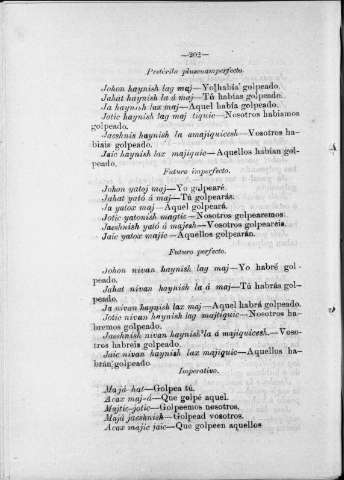 —202—
Pretérito pluscuamperfecto.
Johon haynish lag maj—Yo había golpeado.
Jahat haynish la á maj—Tú habías golpeado.
Ja haynish lax maj—Aquel había golpeado.
Jotic haynish lag maj tiquic—Nosotros habíamos
golpeado.
Jaeshnis haynish la amajiquicesh—Vosotros ha-
biais golpeado.
Jaic haynish lax majiquic—Aquellos habían gol-
peado.
Futuro imperfecto.
Johon yatoj maj—Yo golpearé.
Jahat yató á maj—Tú golpearás.
Ja yatox maj—Aquel golpeará.
Jotic yatonish magtic—Nosotros golpearemos.
Jaeshnish yató á majesh—Vosotros golpeareis.
Jaic yatox majic—Aquellos golpearán.
Futuro perfecto.
Johon nivan haynish lag maj—Yo habré gol-
peado.
Jahat nivan haynish la á maj—Tú habrás gol-
peado.
Ja nivan haynish lax maj—Aquel habrá golpeado.
Jotic nivan haynish lag majtiquic—Nosotros ha-
bremos golpeado.
Jaeshnish nivan haynish la á majiquicesh.—Voso-
tros habreis golpeado.
Jaic nivan haynish lax majiquic—Aquellos ha-
brán golpeado
Imperativo.
Majá hat—Golpea tú.
Acax maj-á—Que golpé aquel.
Majtic-jotic—Golpeemos nosotros.
Majá jaeshnish—Golpead vosotros.
Acax majic jaic—Que golpeen aquellos